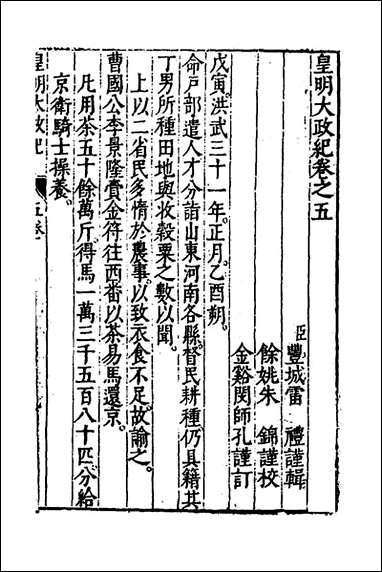 皇明大政紀卷之五
臣豐城雷　禮謹輯
餘姚朱　錦謹校
金谿閔師孔謹訂
戊寅。洪武三十一年。正月。乙酉朔。
命戶部遣人才分詣山東河南各縣。督民耕種。仍具籍其
丁男所種田地與收穀粟之數以聞。
上以二省民多惰於農事。以致衣食不足。故諭之。
曹國公李景隆賫金符往西番以茶易馬還京。
凡用茶五十餘萬斤。得馬一萬三千五百八十四匹。分給
京衛騎士操養。
皇明大政紀
五卷